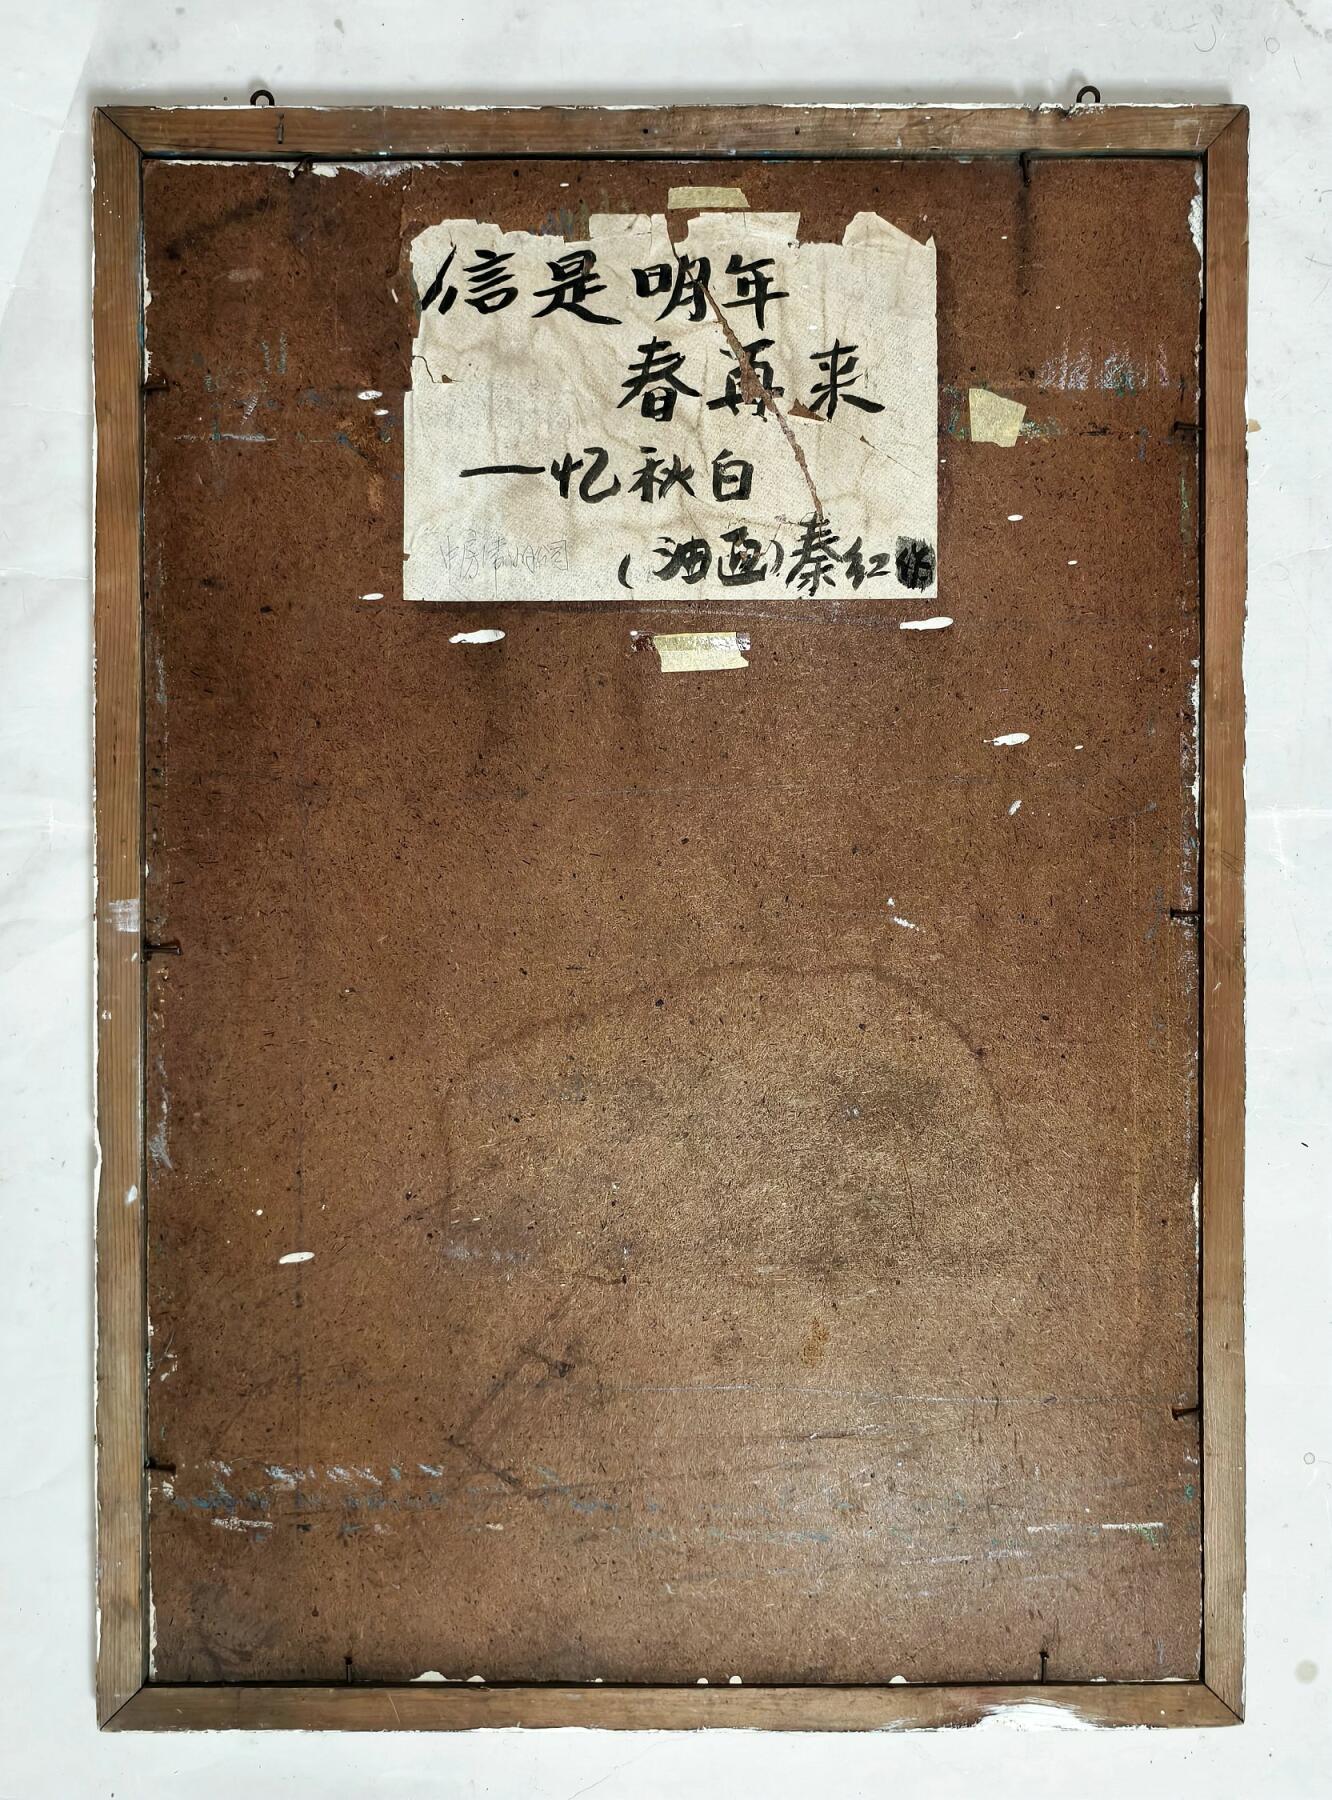 信是明年
春再来
一忆秋白
(油画)秦红作